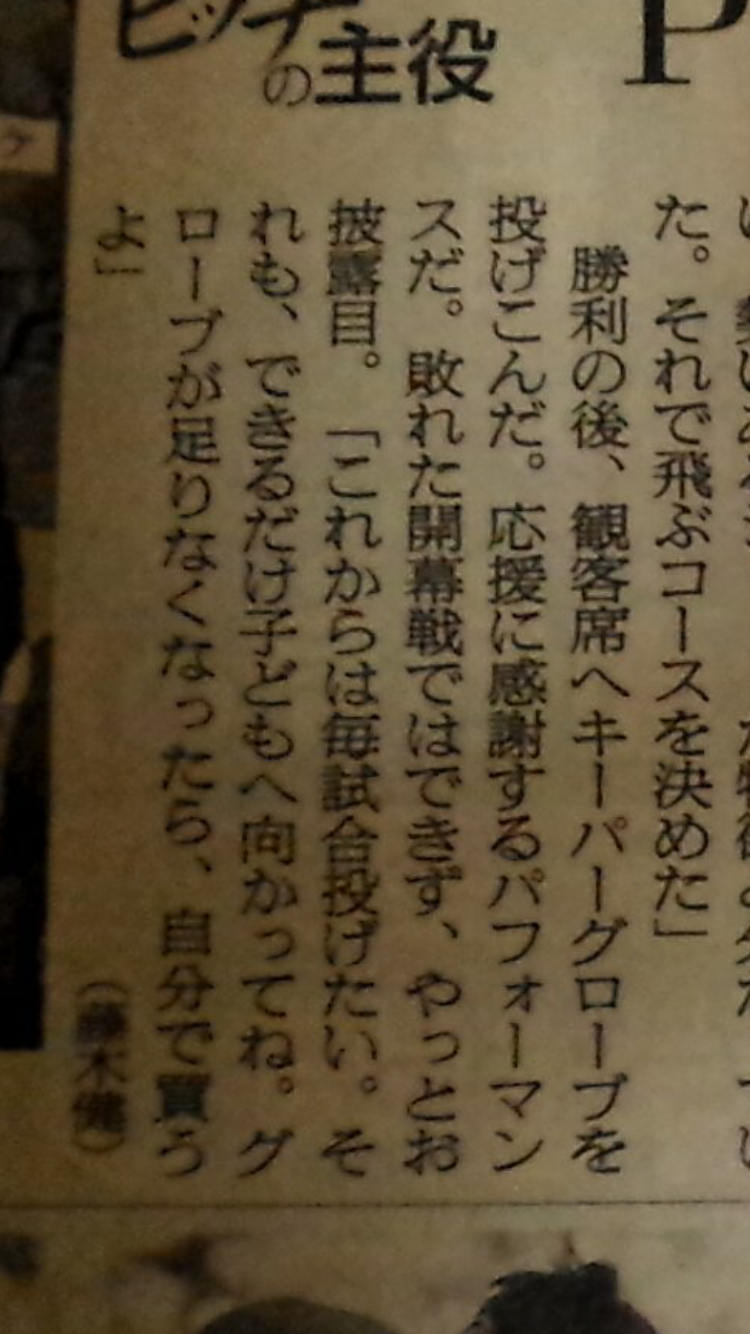 ピッチ
の主役
P
た。それで飛ぶコースを決めた」
勝利の後、観客席へキーパーグローブを
投げこんだ。応援に感謝するパフォーマン
スだ。敗れた開幕戦ではできず、やっとお
披露目。「これからは毎試合投げたい。そ
れも、できるだけ子どもへ向かってね。グ
ローブが足りなくなったら、自分で買う
よ」
(藤木健)